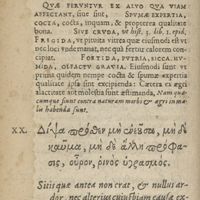 QVÆ FERVNTVR EX ALVO QVA VIAM
AFFECTANT, siue sint, SPVMÆ EXPERTIA,
COCTA, cocta, inquam, & propterea qualitate
bona. SIVE CRVDA, vt hist. 5. lib. 1. epid.
FRIGIDA, vt pituita vitrea quæ eiusmodi est vt
vel loci vnde manat, nec quò fertur calorem con-
cipiat. FOETIDA, PVTRIA, SICCA, HV-
MIDA, OLFACTV GRAVIA. Eiusmodi sunt vt
prima quidem nempe cocta & spumæ expertia
qualitate ipsa sint excipienda: Cætera ex agri
iactatione aut molestia sunt æstimanda, Nam quæ-
cumque sunt contra naturam morbi & ægri in ma-
la habenda sunt.
XX. Δίψα πρόσθεν μὴ ἐνεοῦσα, μὴ δὲ
καῦμα, μὴ δὲ ἄλλη πρόφα-
σις, οὖρον, ῥινὸς ὑγρασμός.
Sitis quæ antea non erat, & nullus ar-
dor, nec alterius cuiusquam causæ ex-